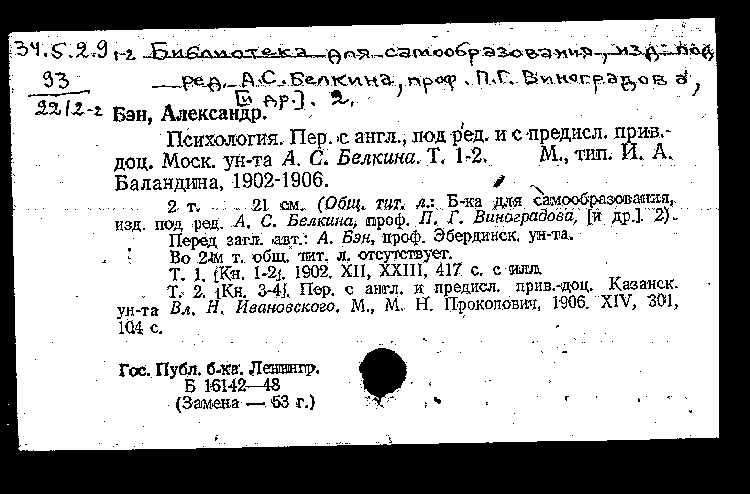 34.5.2.9 1-2 Библиотека для самообразования, изд. под
93 ред. А.С. Белкина, проф. П.Г. Виноградова,
22/2-2 [и др.]. 2.
Бэн, Александр.
Психология. Пер. с англ., под ред. и с предисл. прив.-
доц. Моск. ун-та А. С. Белкина. Т. 1-2. М., тип. И. А.
Баландина, 1902-1906.
2 т. 21 см. (Общ. тит. л.: Б-ка для самообразования,
изд. под ред. А. С. Белкина, проф. П. Г. Виноградова, [и др.]. 2).
Перед загл. авт.: А. Бэн, проф. Эбердинск. ун-та.
Во 2-м т. общ. тит. л. отсутствует.
Т. 1. [Кн. 1-2]. 1902. XII, XXIII, 417 с. с илл.
Т. 2. [Кн. 3-4]. Пер. с англ. и предисл. прив.-доц. Казанск.
ун-та Вл. Н. Ивановского. М., М. Н. Прокопович, 1906. XIV, 301,
104 с.
Гос. Публ. б-ка. Ленингр.
Б 16142—48
(Замена — 53 г.)